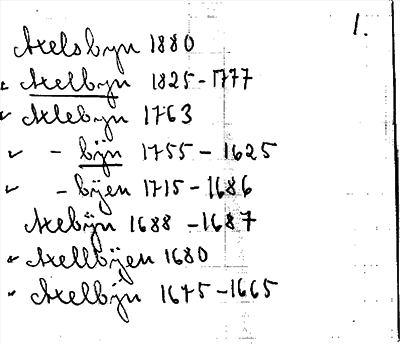 1.
Axelsbyn 1880
Axelbyn 1825-1777
Axlebyn 1763
- bÿn 1755-1625
- bÿen 1715-1686
Axebÿn 1688-1687
Axellbÿen 1680
Axelbÿn 1675-1665